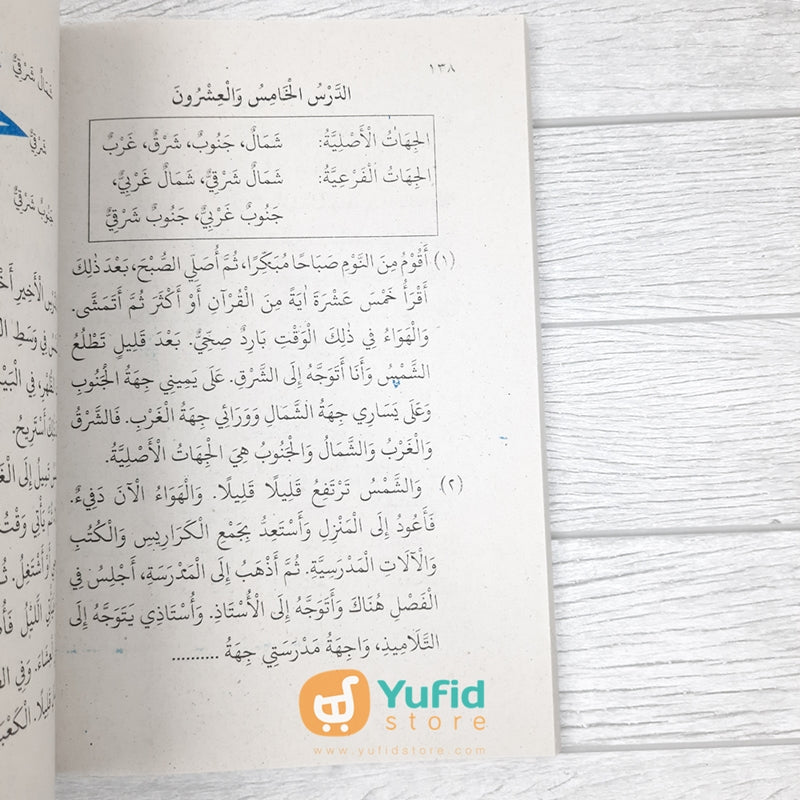 ١٣٨
الدَّرْسُ الْخَامِسُ وَالْعِشْرُونَ
الجِهَاتُ الْأَصْلِيَّةُ: شَمَالٌ، جَنُوبٌ، شَرْقٌ، غَرْبٌ
الجِهَاتُ الْفَرْعِيَّةُ: شَمَالٌ شَرْقِيٌّ، شَمَالٌ غَرْبِيٌّ،
جَنُوبٌ غَرْبِيٌّ، جَنُوبٌ شَرْقِيٌّ
(١) أَقُوْمُ مِنَ النَّوْمِ صَبَاحًا مُبَكِّرًا، ثُمَّ أُصَلِّي الصُّبْحَ، بَعْدَ ذٰلِكَ
أَقْرَأُ خَمْسَ عَشْرَةَ اٰيَةً مِنَ الْقُرْآنِ أَوْ أَكْثَرَ ثُمَّ أَتَمَشَّى.
وَالْهَوَاءُ فِي ذٰلِكَ الْوَقْتِ بَارِدٌ صِحِّيٌّ. بَعْدَ قَلِيلٍ تَطْلُعُ
الشَّمْسُ وَأَنَا أَتَوَجَّهُ إِلَى الشَّرْقِ. عَلَى يَمِينِي جِهَةُ الْجَنُوبِ
وَعَلَى يَسَارِي جِهَةُ الشَّمَالِ وَوَرَائِي جِهَةُ الْغَرْبِ. فَالشَّرْقُ
وَالْغَرْبُ وَالشَّمَالُ وَالْجَنُوبُ هِيَ الْجِهَاتُ الْأَصْلِيَّةُ.
(٢) وَالشَّمْسُ تَرْتَفِعُ قَلِيلًا قَلِيلًا. وَالْهَوَاءُ الْآنَ دَفِيءٌ.
فَأَعُودُ إِلَى الْمَنْزِلِ وَأَسْتَعِدُّ بِجَمْعِ الْكَرَارِيسِ وَالْكُتُبِ
وَالْآلَاتِ الْمَدْرَسِيَّةِ. ثُمَّ أَذْهَبُ إِلَى الْمَدْرَسَةِ، أَجْلِسُ فِي
الْفَصْلِ هُنَاكَ وَأَتَوَجَّهُ إِلَى الْأُسْتَاذِ. وَأُسْتَاذِي يَتَوَجَّهُ إِلَى
التَّلَامِيذِ، وَاجِهَةُ مَدْرَسَتِي جِهَةُ ..........
شَمَالٌ شَرْقِيٌّ
شَرْقِيٌّ
جَنُوبٌ شَرْقِيٌّ
Yufid
store
www.yufidstore.com